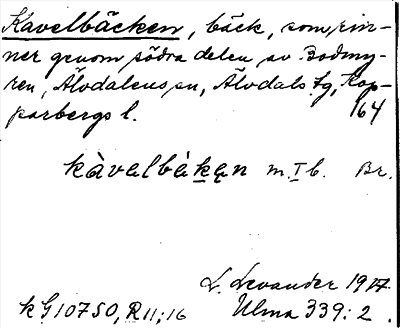 Kavelbäcken, bäck, som rin-
ner genom södra delen av Bodmy-
ren, Älvdalens sn, Älvdals tg, Kop-
parbergs l. 164
kàvalbàkęn m. I b. Br.
L. Levander 1917
kG10750, R11;16 Ulma 339:2.